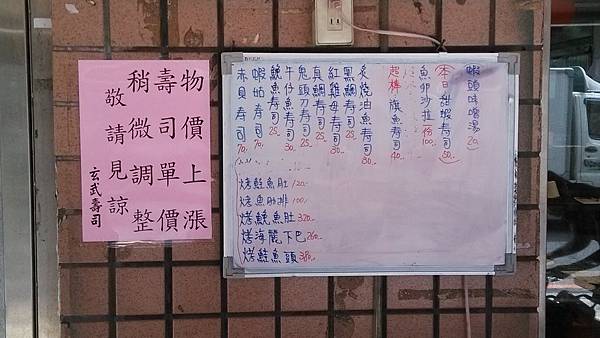 物價上漲
壽司單價
稍微調整
敬請見諒
玄武壽司
蝦頭味噌湯 20.
本日 甜蝦壽司 50.
魚卵沙拉 份100.
超棒 旗魚壽司 40.
炙燒油魚壽司 30.
黑鯛壽司 25.
紅雞母壽司 25.
真鯛壽司 25.
鬼頭刀壽司 25.
午仔魚壽司 30.
鮸魚壽司 25.
蝦蛄壽司 70.
赤貝壽司 70.
烤鮭魚肚 120.
烤魚肋排 100.
烤鮸魚肚 320.
烤海鱺下巴 260.
烤鮭魚頭 380.